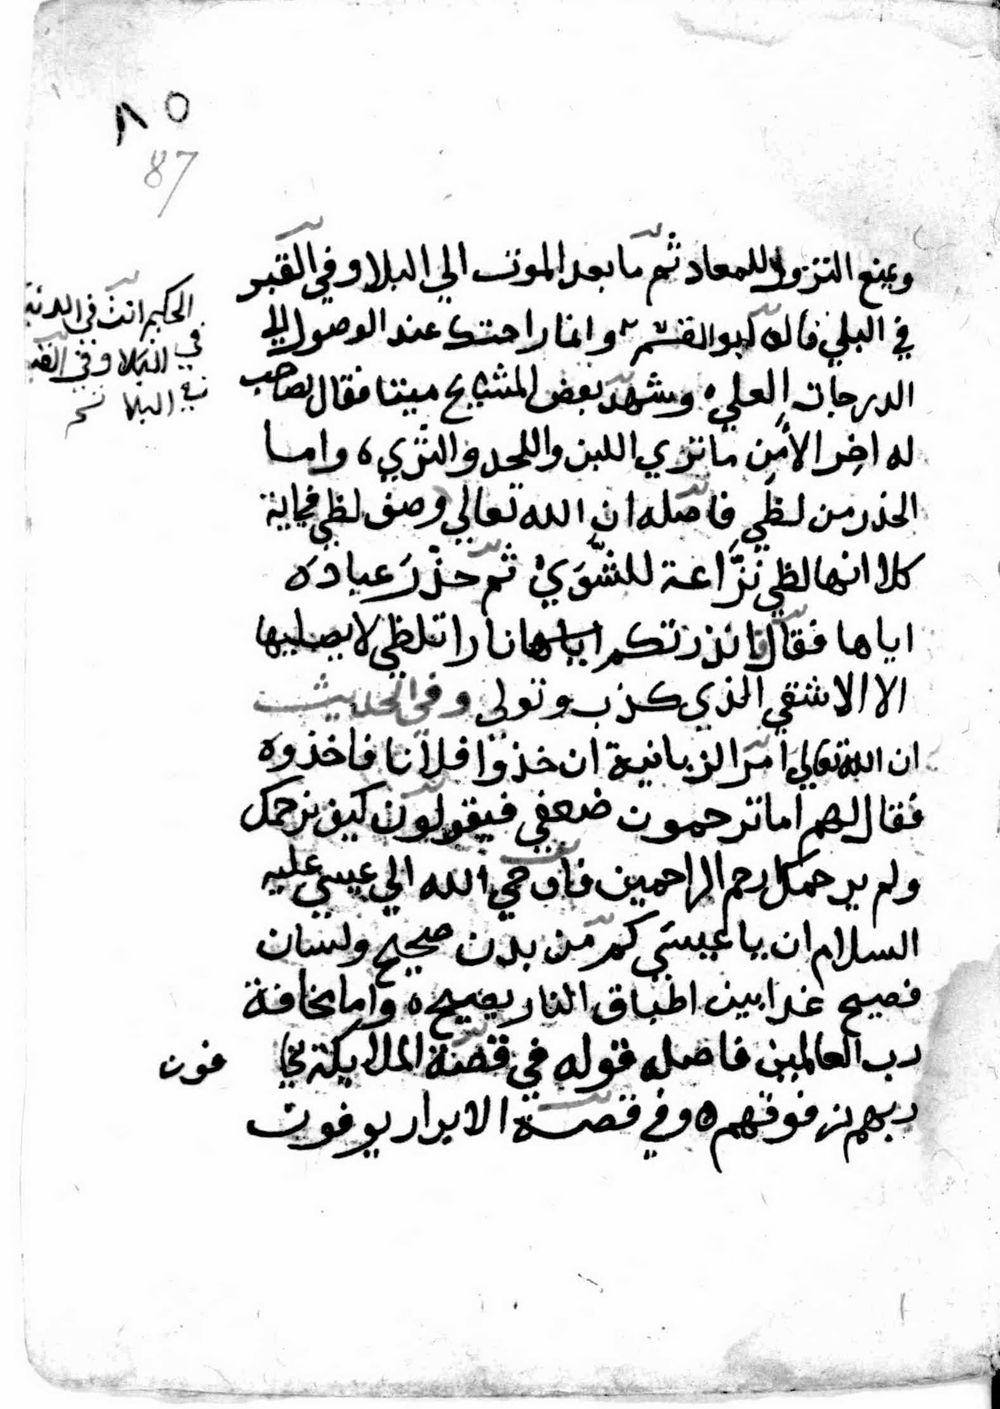 ٨٥
87
ويمنع التزول للمعاد ثم ما بعد الموت الي البلا وفي القبر
في البلي قال ابو القسم وانما راحتك عند الوصول الي
الدرجات العلي وشهد بعض المشايخ ميتا فقال لصاحب
له اخر الامن ما تري اللبن واللحد والثري واما
الحذر من لظي فاصله ان الله تعالي وصف لظي في اية
كلا انها لظي نزاعة للشوي ثم حذر عباده
اياها فقال انذرتكم اياها نارا تلظي لا يصليها
الا الاشقي الذي كذب وتولي وفي الحديث
ان الله تعالي امر الزبانية ان خذوا فلانا فاخذوه
فقال لهم اما ترحمون ضعفي فيقولون كيف نرحمك
ولم يرحمك ارحم الراحمين فاوحي الله الي عيسي عليه
السلام ان يا عيسي كم من بدن صحيح ولسان
فصيح غدا بين اطباق النار يصيح واما مخافة
رب العالمين فاصله قوله في قصة الملايكة يخا فون
ربهم من فوقهم وفي قصة الابرار يوفون
الحكيم انت في الدنيا
في البلا وفي القبر
في البلا نسخ